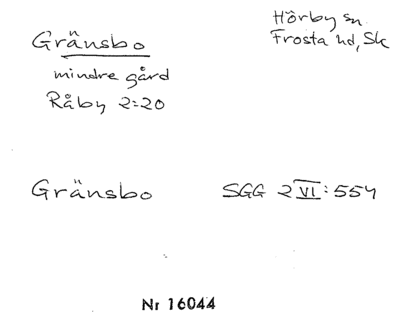 Gränsbo
mindre gård
Råby 2:20
Hörby sn
Frosta hd, Sk
Gränsbo
SGG 2 VI: 554
Nr 16044